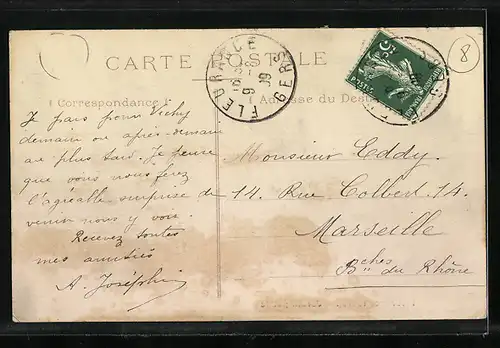 8
CARTE POSTALE
FLEURANCE
GERS
9-8
09
5c
Correspondance
Adresse du Desti
Je pars pour Vichy
demain ou après-demain
au plus tard. Je pense
que vous nous ferez
l'agréable surprise de
venir nous y voir.
Recevez toutes
mes amitiés
A. Joséphin
Monsieur Eddy.
14. Rue Colbert. 14.
Marseille
Bches du Rhône